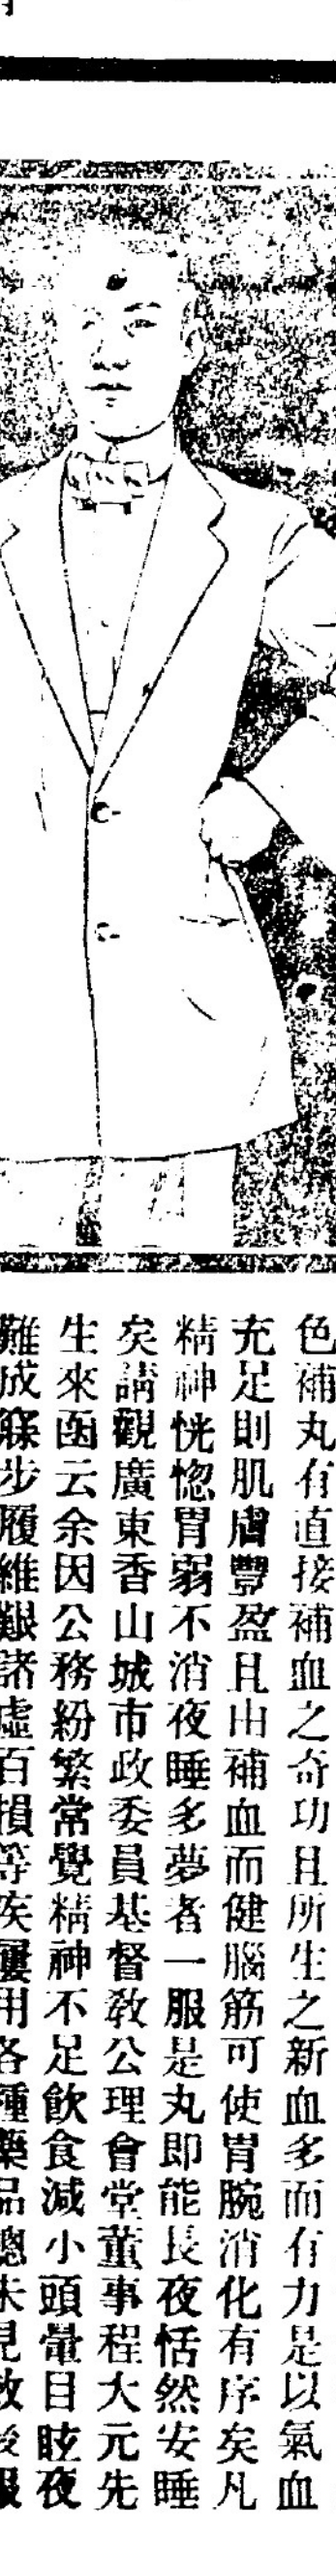 色補丸有直接補血之奇功且所生之新血多而有力是以氣血
充足則肌膚豐盈且由補血而健腦筋可使胃腕消化有序矣凡
精神恍惚胃弱不消夜睡多夢者一服是丸即能長夜恬然安睡
矣請觀廣東香山城市政委員基督敎公理會堂董事程大元先
生來函云余因公務紛繁常覺精神不足飲食減小頭暈目眩夜
難成寐步履維艱諸虛百損等疾屢用各種藥品總未見效後服